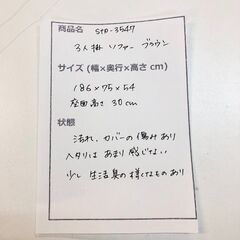 商品名
STD-3547
3人掛 ソファー ブラウン
サイズ (幅×奥行×高さ cm)
186×75×54
座面高さ 30cm
状態
汚れ、カバーの傷みあり
ヘタりは あまり感じない
少し 生活臭の様なもの あり